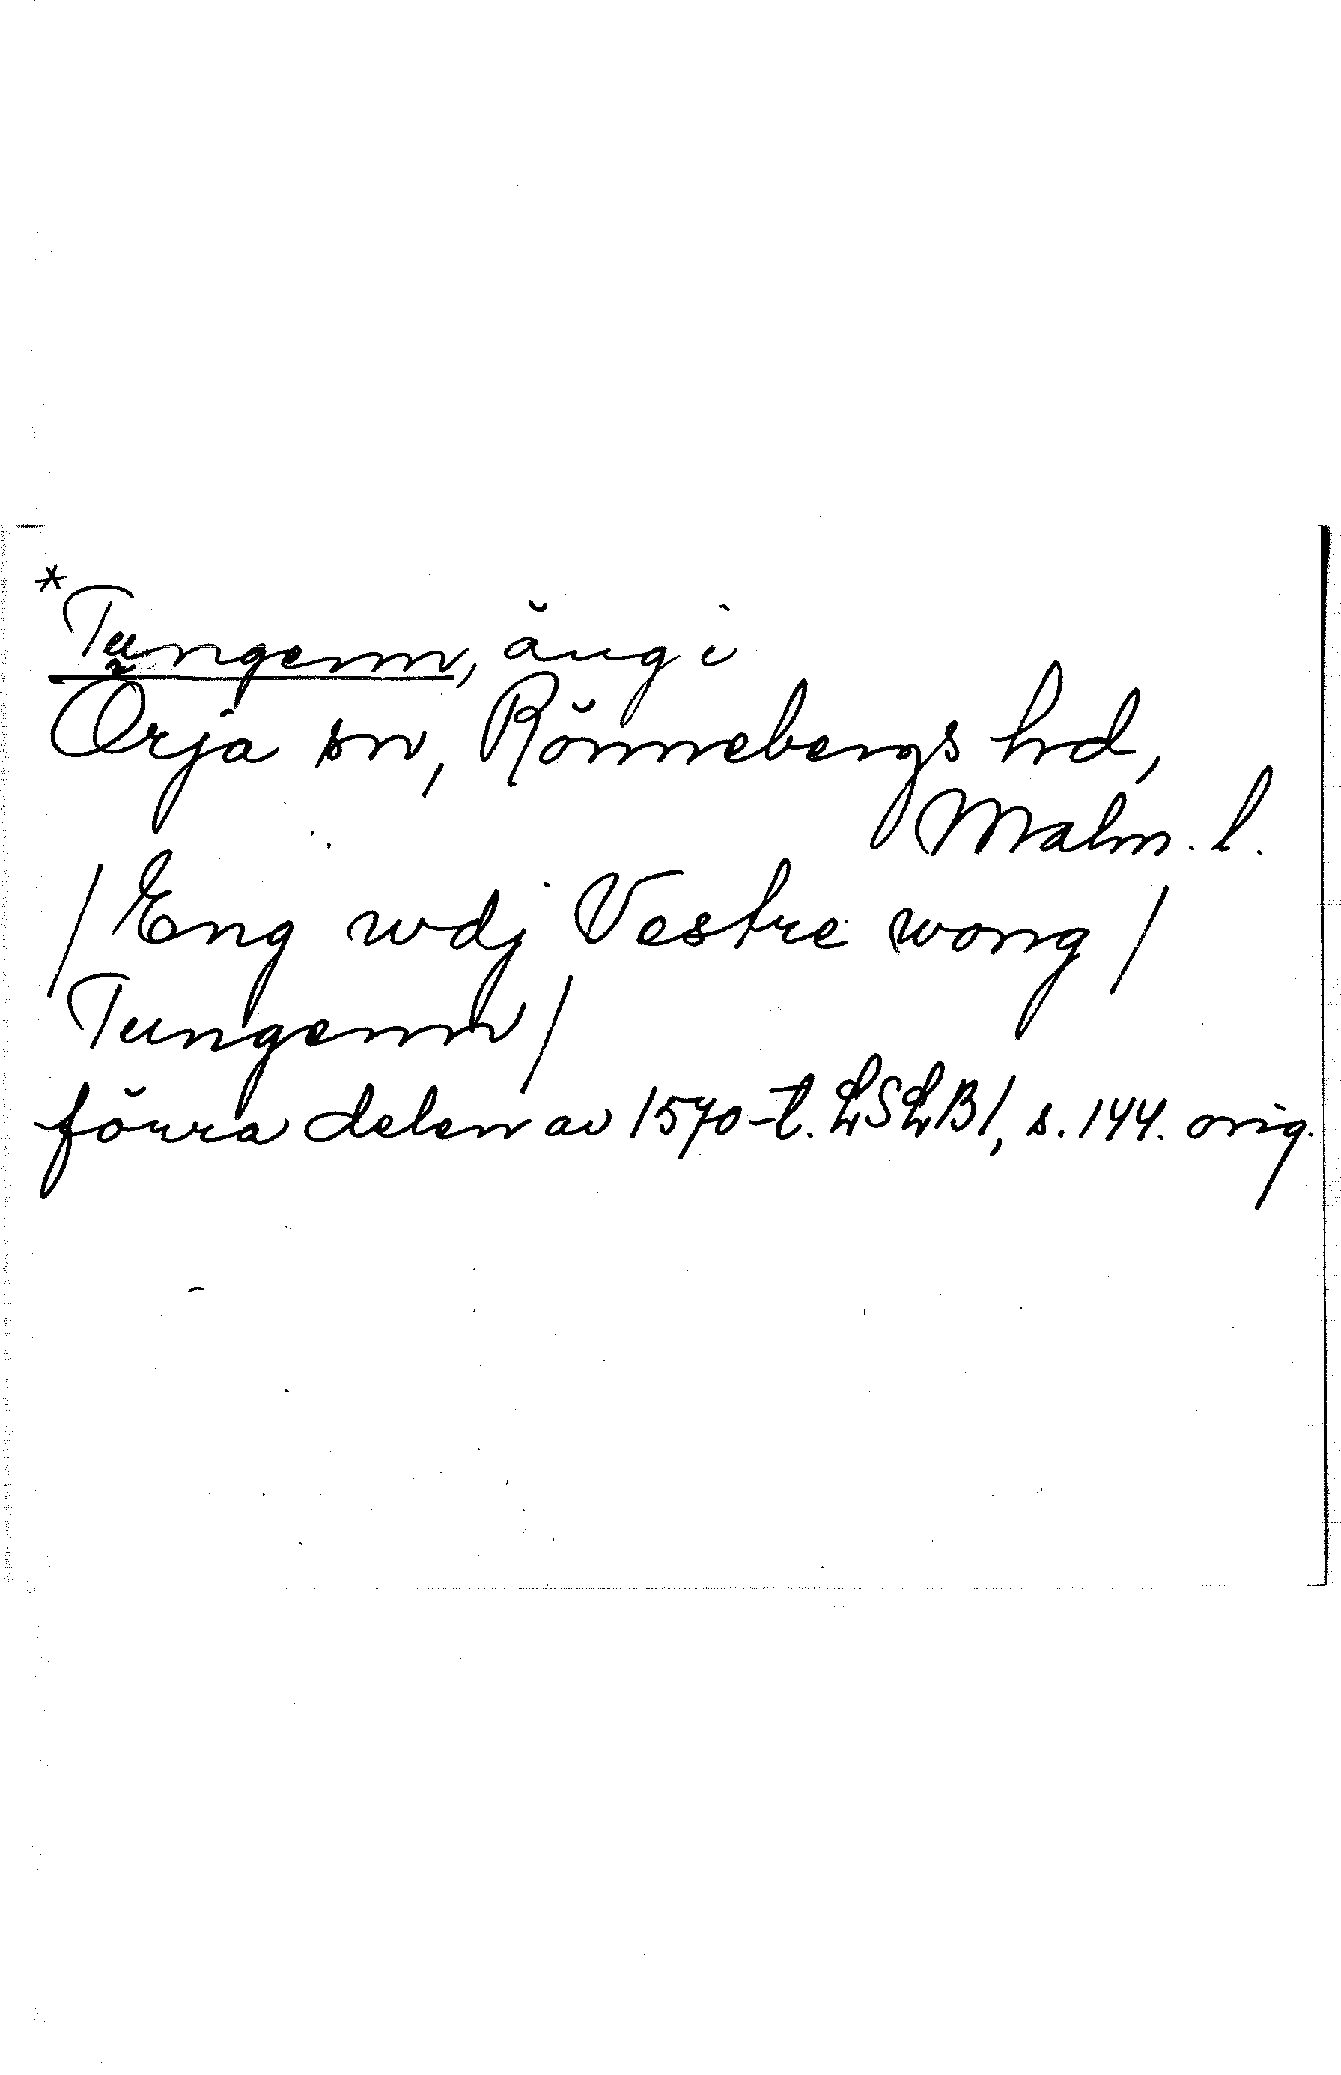 *
Tungenn, äng i
Örja sn, Rönnebergs hd,
Malm. l.
/ Eng wdj Vestre wong /
Tungenn /
förra delen av 1570-t. LSLB 1, s. 144. orig.